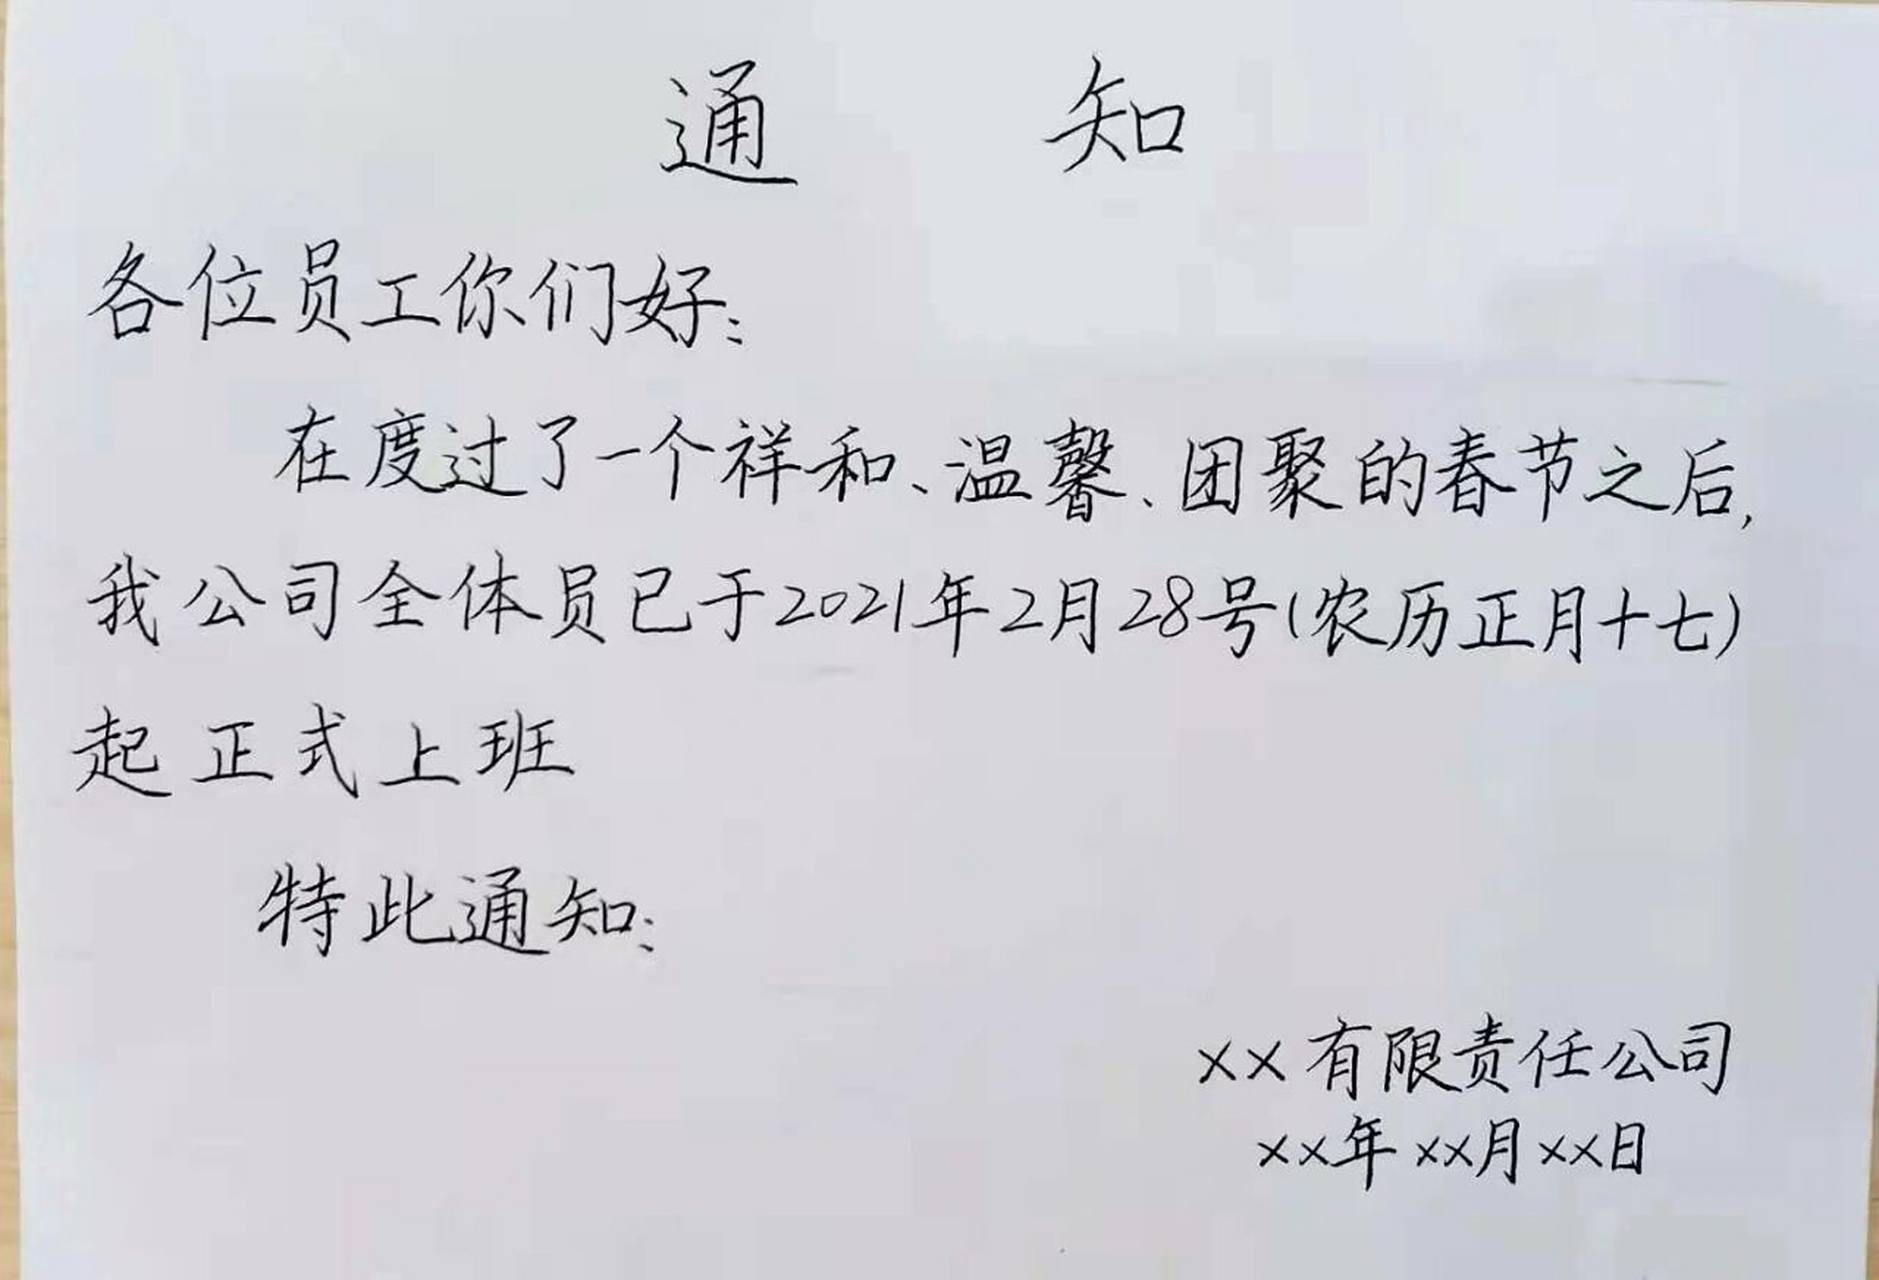 通 知
各位员工你们好：
在度过了一个祥和、温馨、团聚的春节之后，
我公司全体员已于2021年2月28号（农历正月十七）
起正式上班
特此通知：
××有限责任公司
××年××月××日